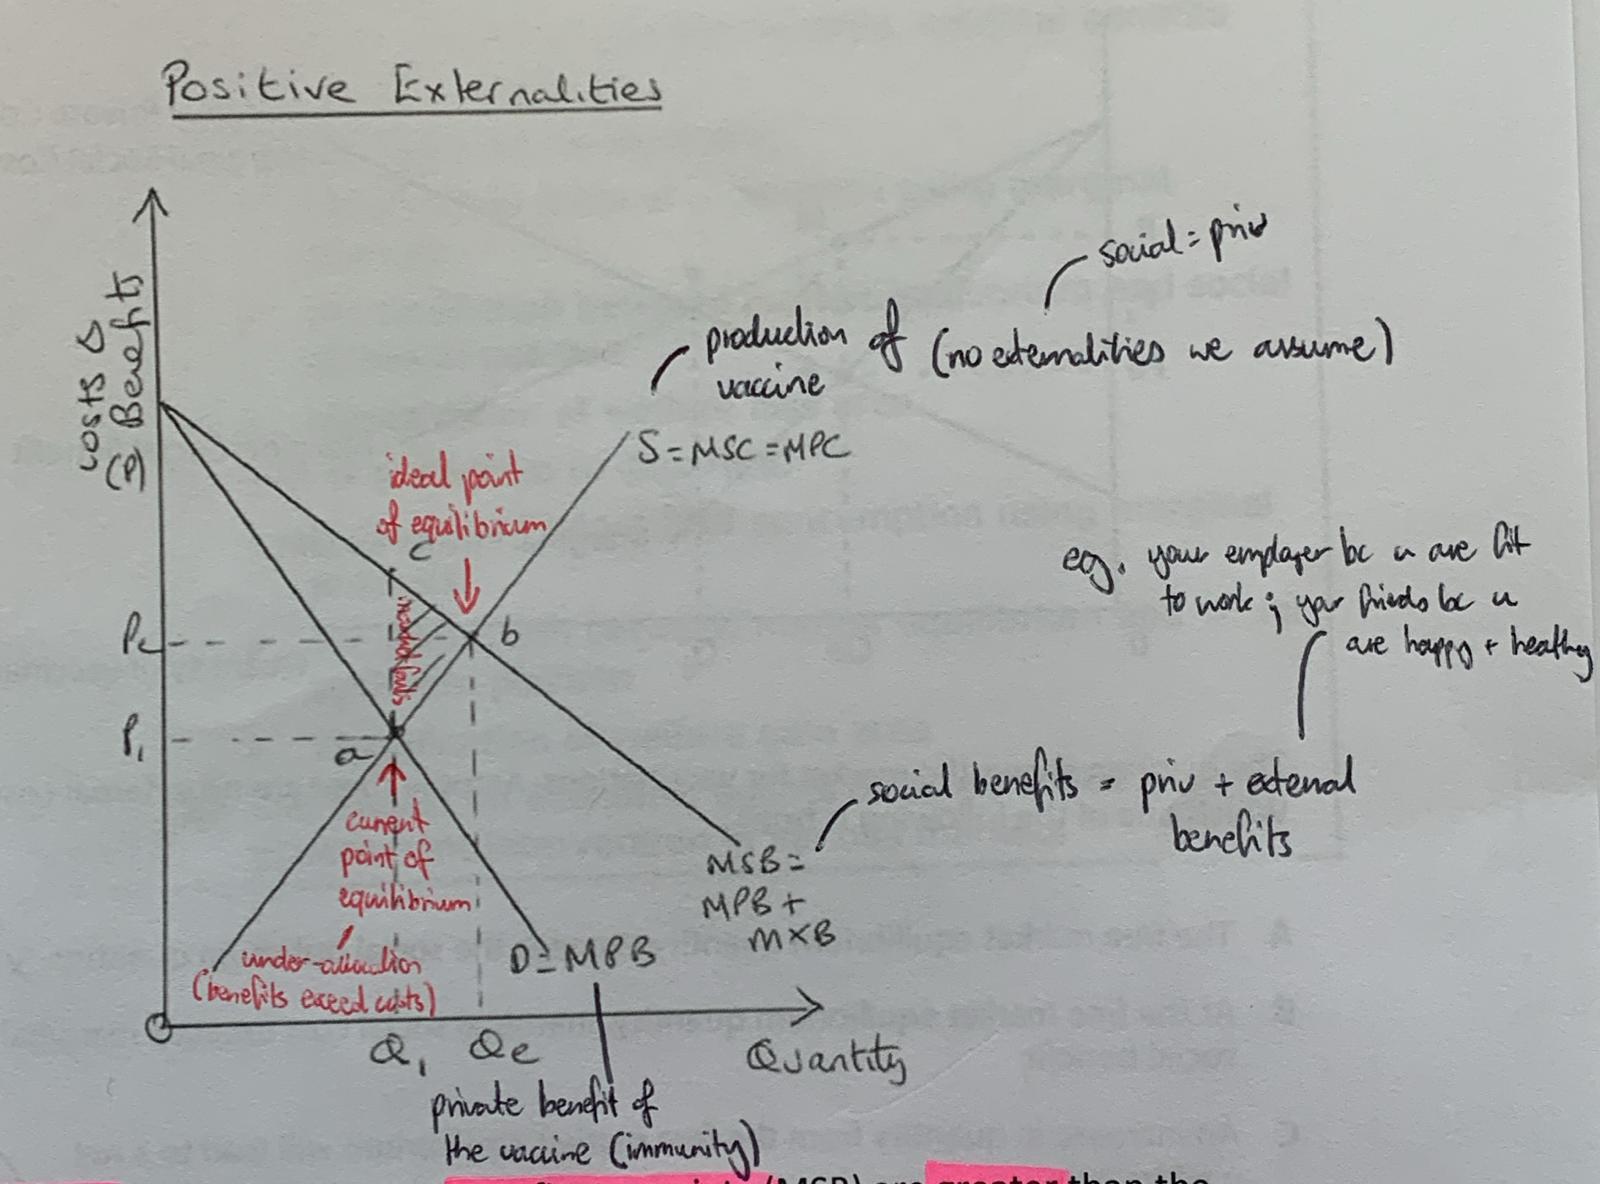 Positive Externalities
Costs &
Benefits
(P)
social = priv
production of (no externalities we assume)
vaccine
S = MSC = MPC
ideal point
of equilibrium
c
eg. your employer bc u are fit
to work ; your friends bc u
are happy + healthy
Pe
b
P1
a
current
point of
equilibrium
under-allocation
(benefits exceed costs)
social benefits = priv + external
benefits
MSB =
MPB +
MXB
D = MPB
O
Q1
Qe
Quantity
private benefit of
the vaccine (immunity)
(MSB) are greater than the